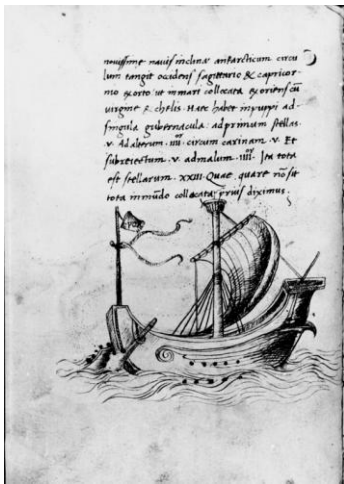 nouissime nauis inclinae antarcticum circu
lum tangit occidens sagittario & capricor
no exorto ut in mari collocata exoriens cũ
uirgine & chelis. Haec habet in puppi ad
singula gubernacula: ad primum stellas.
v. Ad alterum. iiii. circum carinam. v. Et
sub reiectum. v. ad malum. iiii. Ita tota
est stellarum. XXIII. Quae, quare nõ sit
tota in mũdo collocata, prius diximus.